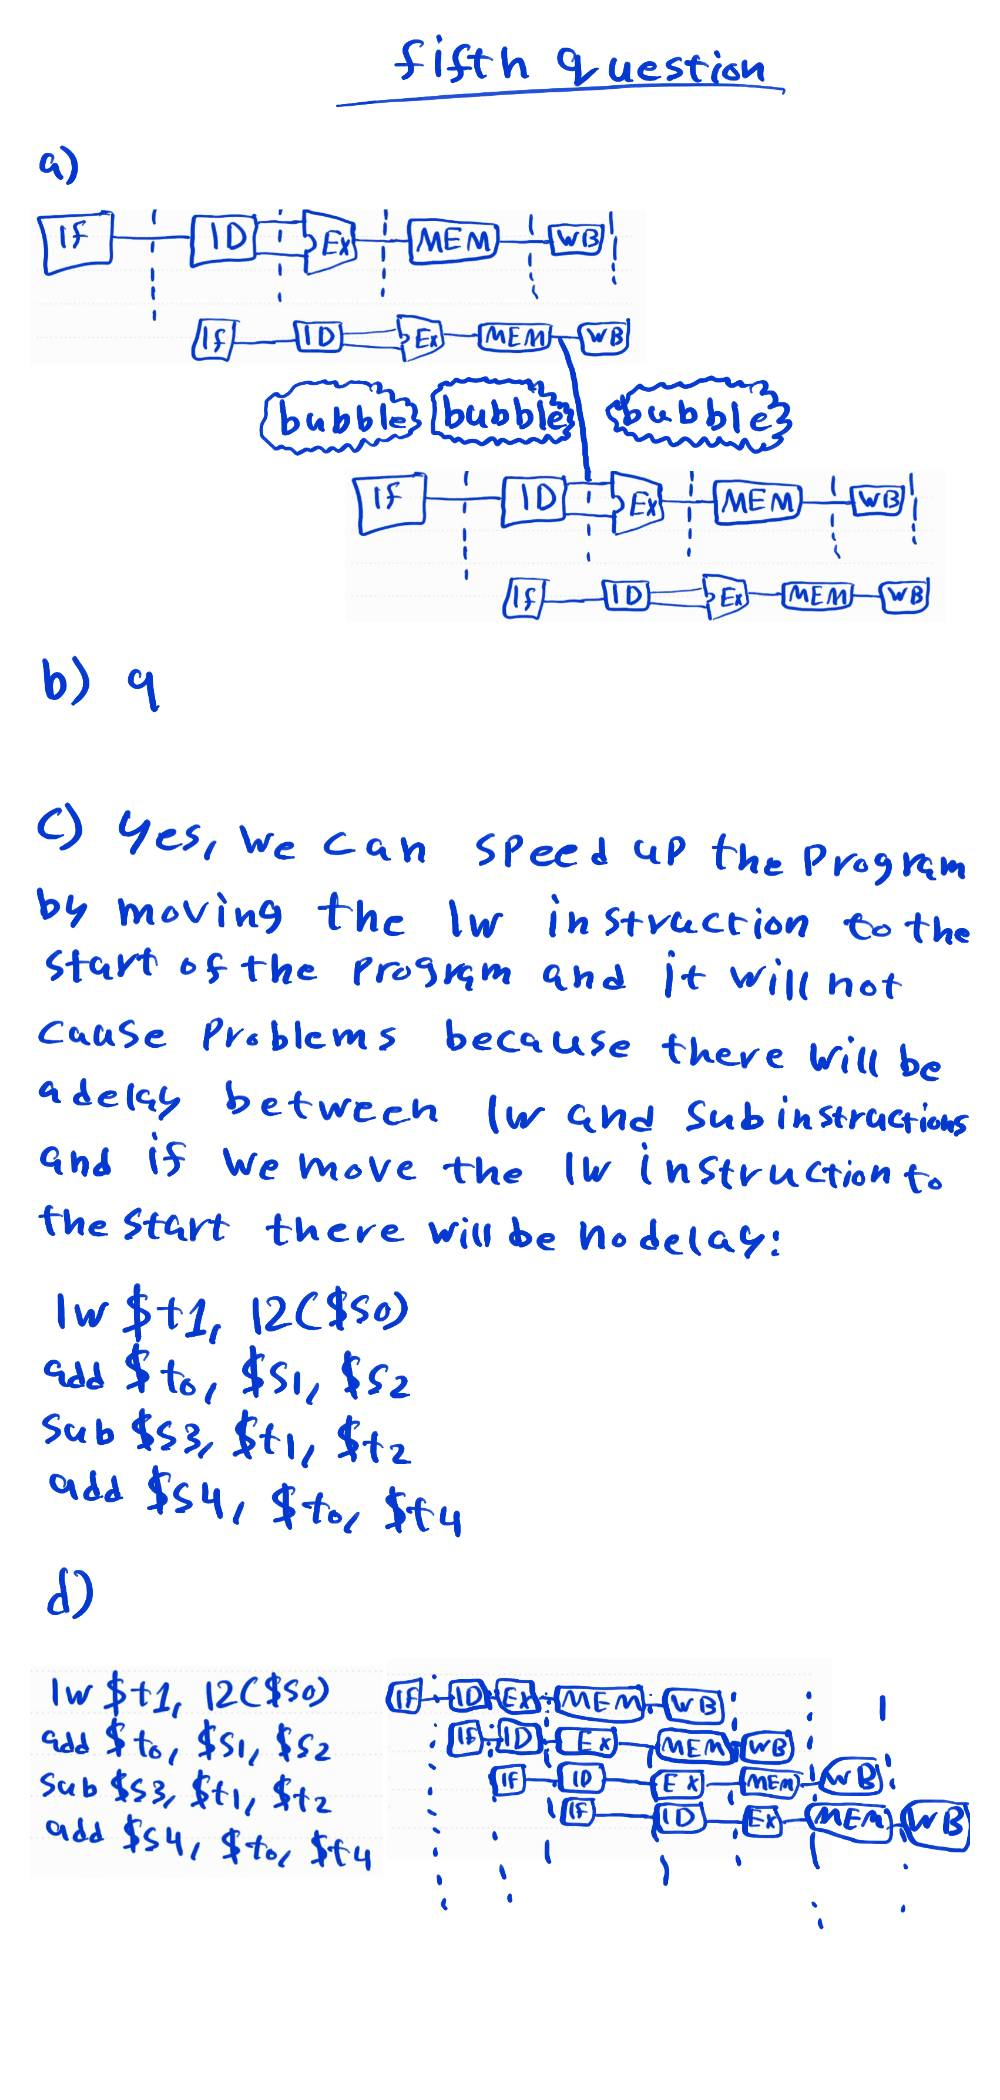 fifth question
a)
IF ID Ex MEM WB
If ID Ex MEM WB
bubble bubble bubble
IF ID Ex MEM WB
If ID Ex MEM WB
b) 9
c) Yes, we can speed up the program
by moving the lw instruction to the
start of the program and it will not
cause problems because there will be
a delay between lw and sub instructions
and if we move the lw instruction to
the start there will be no delay:
lw $t1, 12($s0)
add $t0, $s1, $s2
sub $s3, $t1, $t2
add $s4, $t0, $t4
d)
lw $t1, 12($s0) IF ID Ex MEM WB
add $t0, $s1, $s2 IF ID Ex MEM WB
sub $s3, $t1, $t2 IF ID EX MEM WB
add $s4, $t0, $t4 IF ID Ex MEM WB